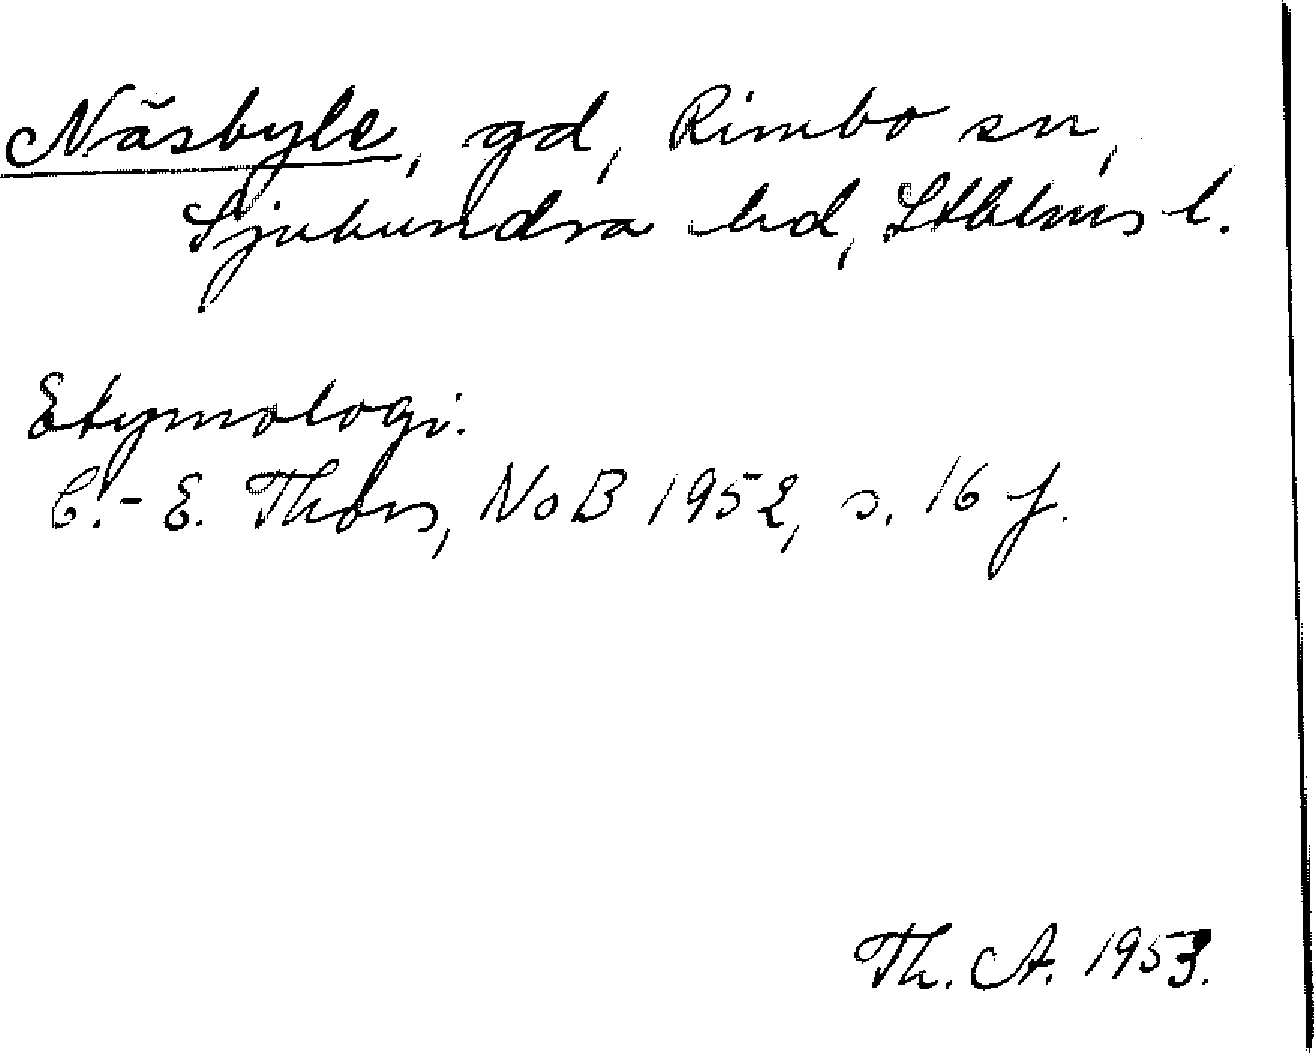 Näsbyle, gd, Rimbo sn,
Sjuhundra hd, Sthlms l.
Etymologi.
C.-E. Thors, NoB 1952, s. 16 f.
Th. A. 1953.